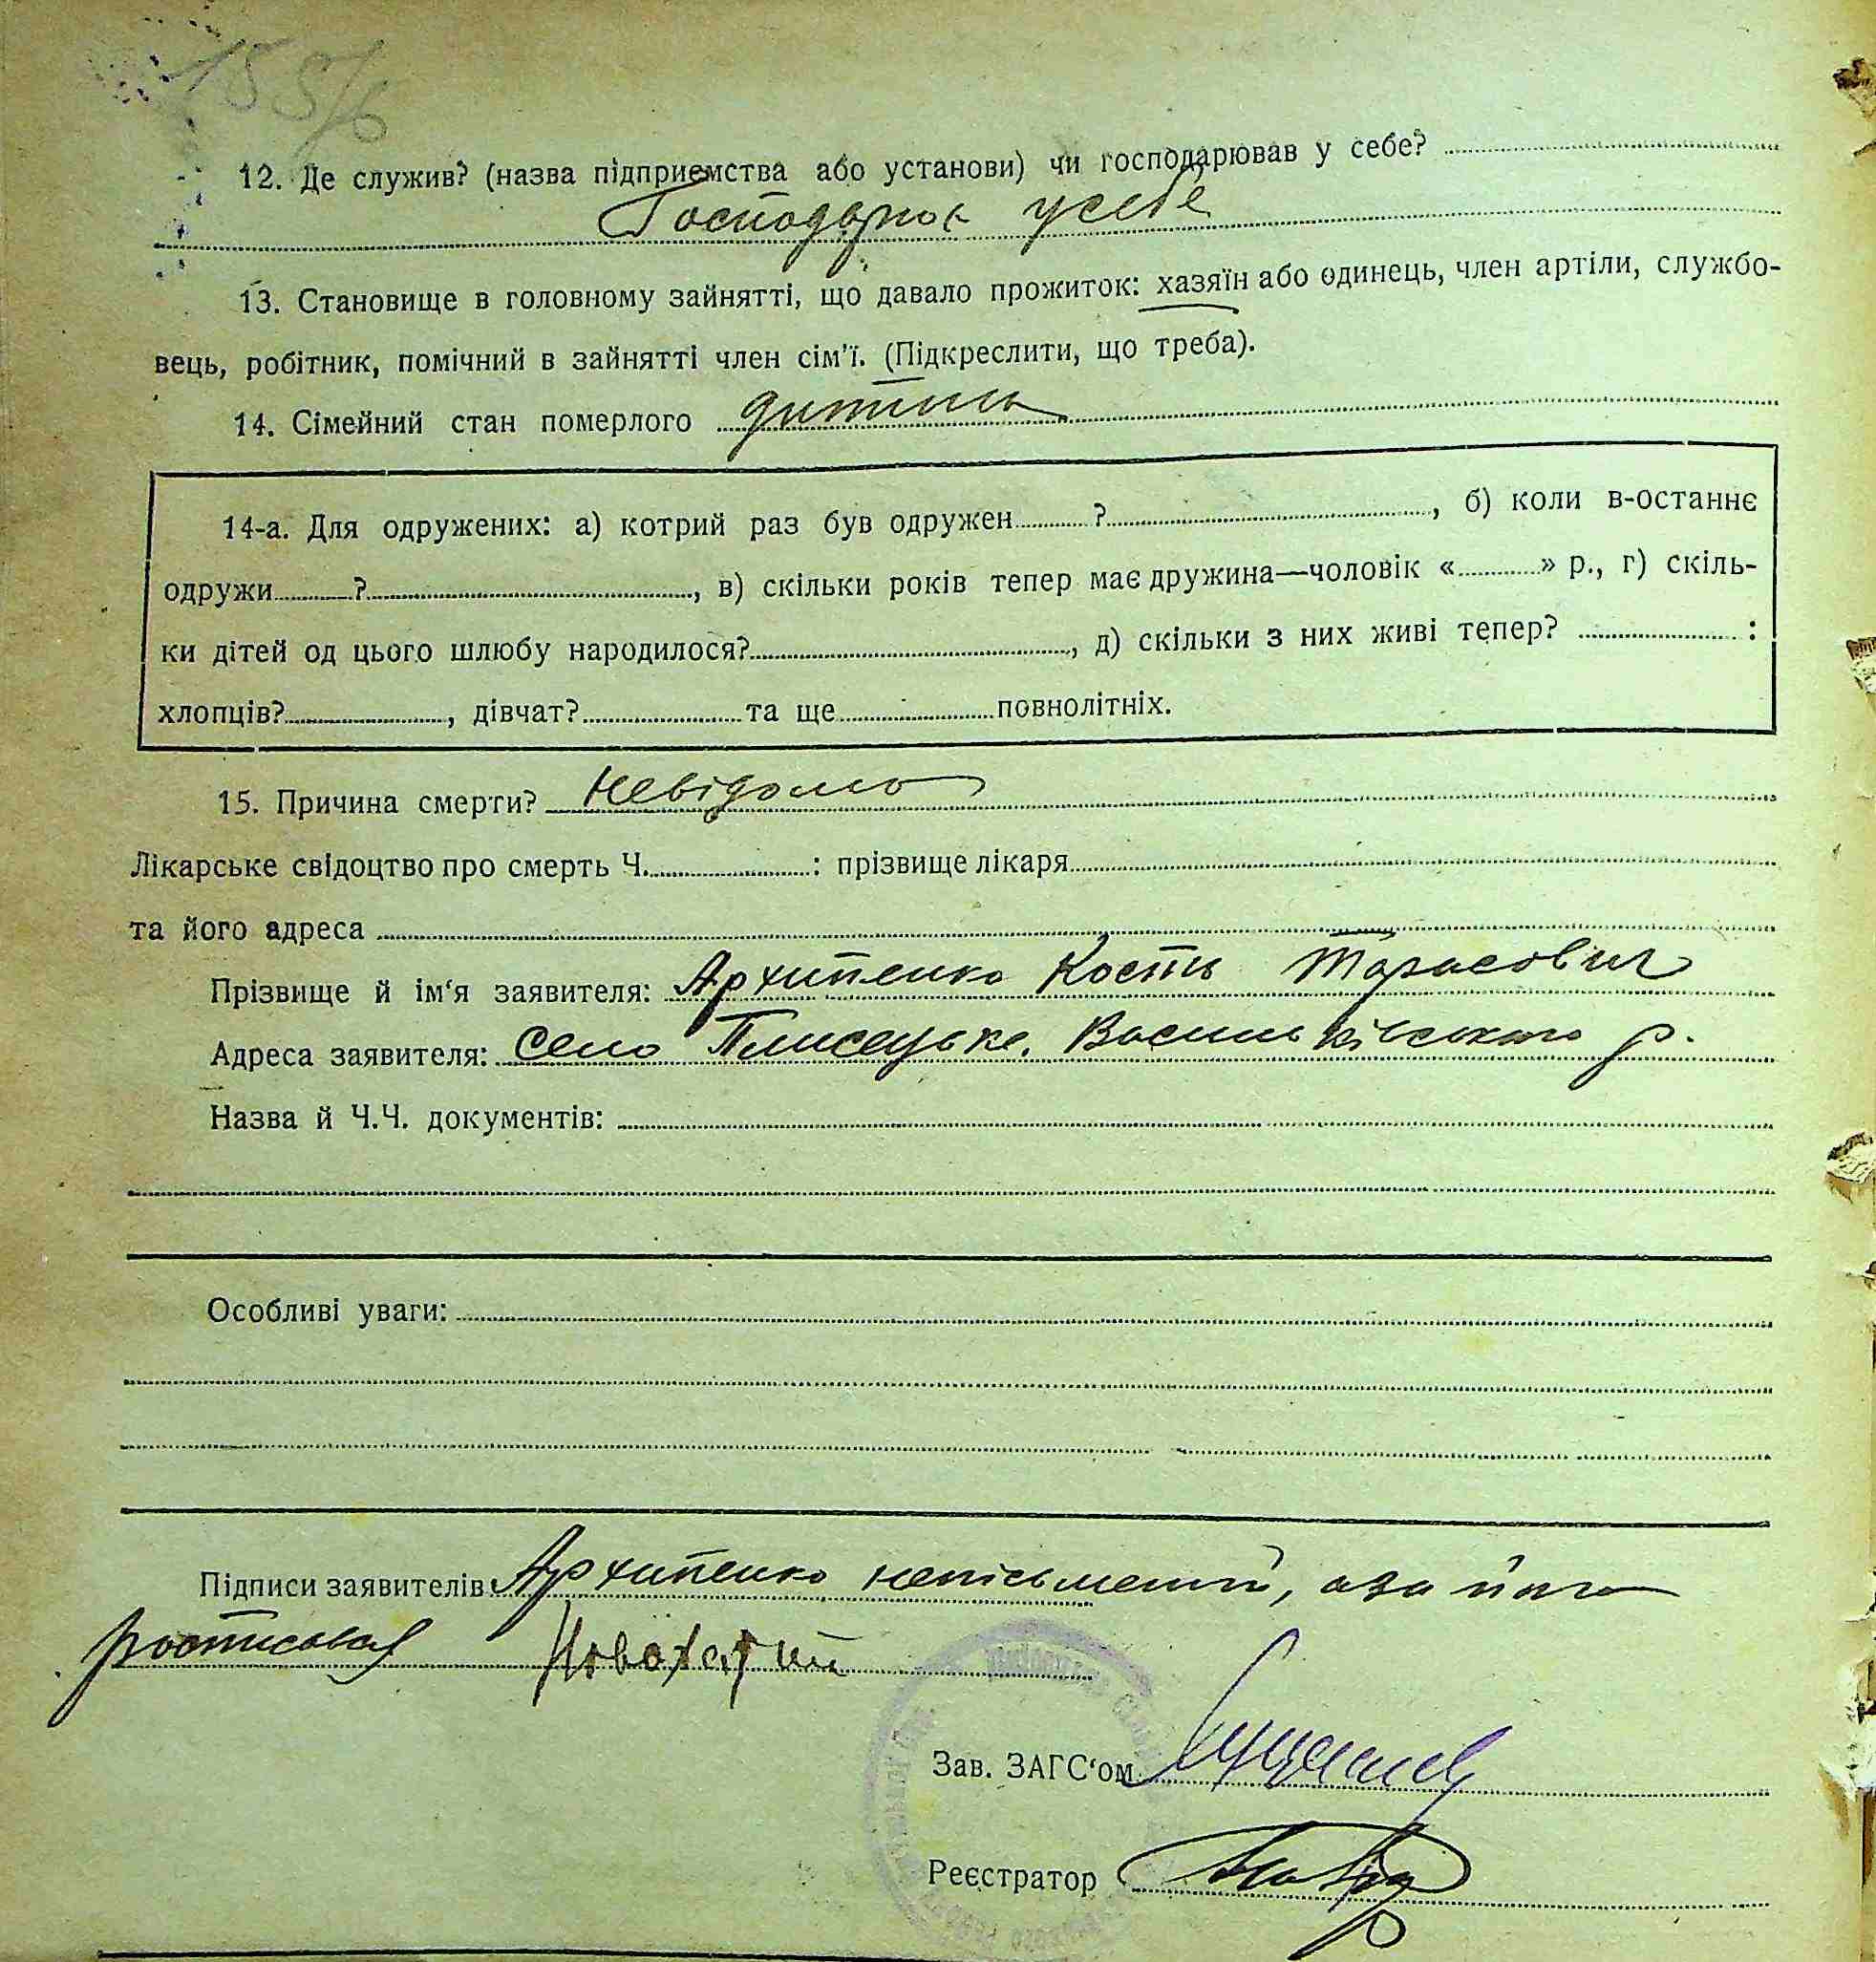 155/6
12. Де служив? (назва підприємства або установи) чи господарював у себе?
Господарює у себе
13. Становище в головному зайнятті, що давало прожиток: хазяїн або одинець, член артіли, службо-
вець, робітник, помічний в зайнятті член сім'ї. (Підкреслити, що треба).
14. Сімейний стан померлого дитина
14-а. Для одружених: а) котрий раз був одружен ? , б) коли в-останнє
одружи ? , в) скільки років тепер має дружина—чоловік « » р., г) скіль-
ки дітей од цього шлюбу народилося? , д) скільки з них живі тепер? :
хлопців? , дівчат? та ще повнолітніх.
15. Причина смерти? Невідомо
Лікарське свідоцтво про смерть Ч. : прізвище лікаря
та його адреса
Прізвище й ім'я заявителя: Архипенко Кость Тарасович
Адреса заявителя: село Плисецьке. Васильківського р.
Назва й Ч.Ч. документів:
Особливі уваги:
Підписи заявителів: Архипенко неписьмений, а за його
росписався
Зав. ЗАГС'ом
Реєстратор